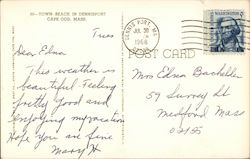 80—TOWN BEACH IN DENNISPORT
CAPE COD, MASS
Tues
Dear Edna
This weather is
beautiful. Feeling
pretty good and
enjoying my vacation
Hope you are fine
Mary H
DENNIS PORT, MA
JUL 30
1968
POST CARD
Mrs Edna
59 Surrey St
Medford Mass
02155